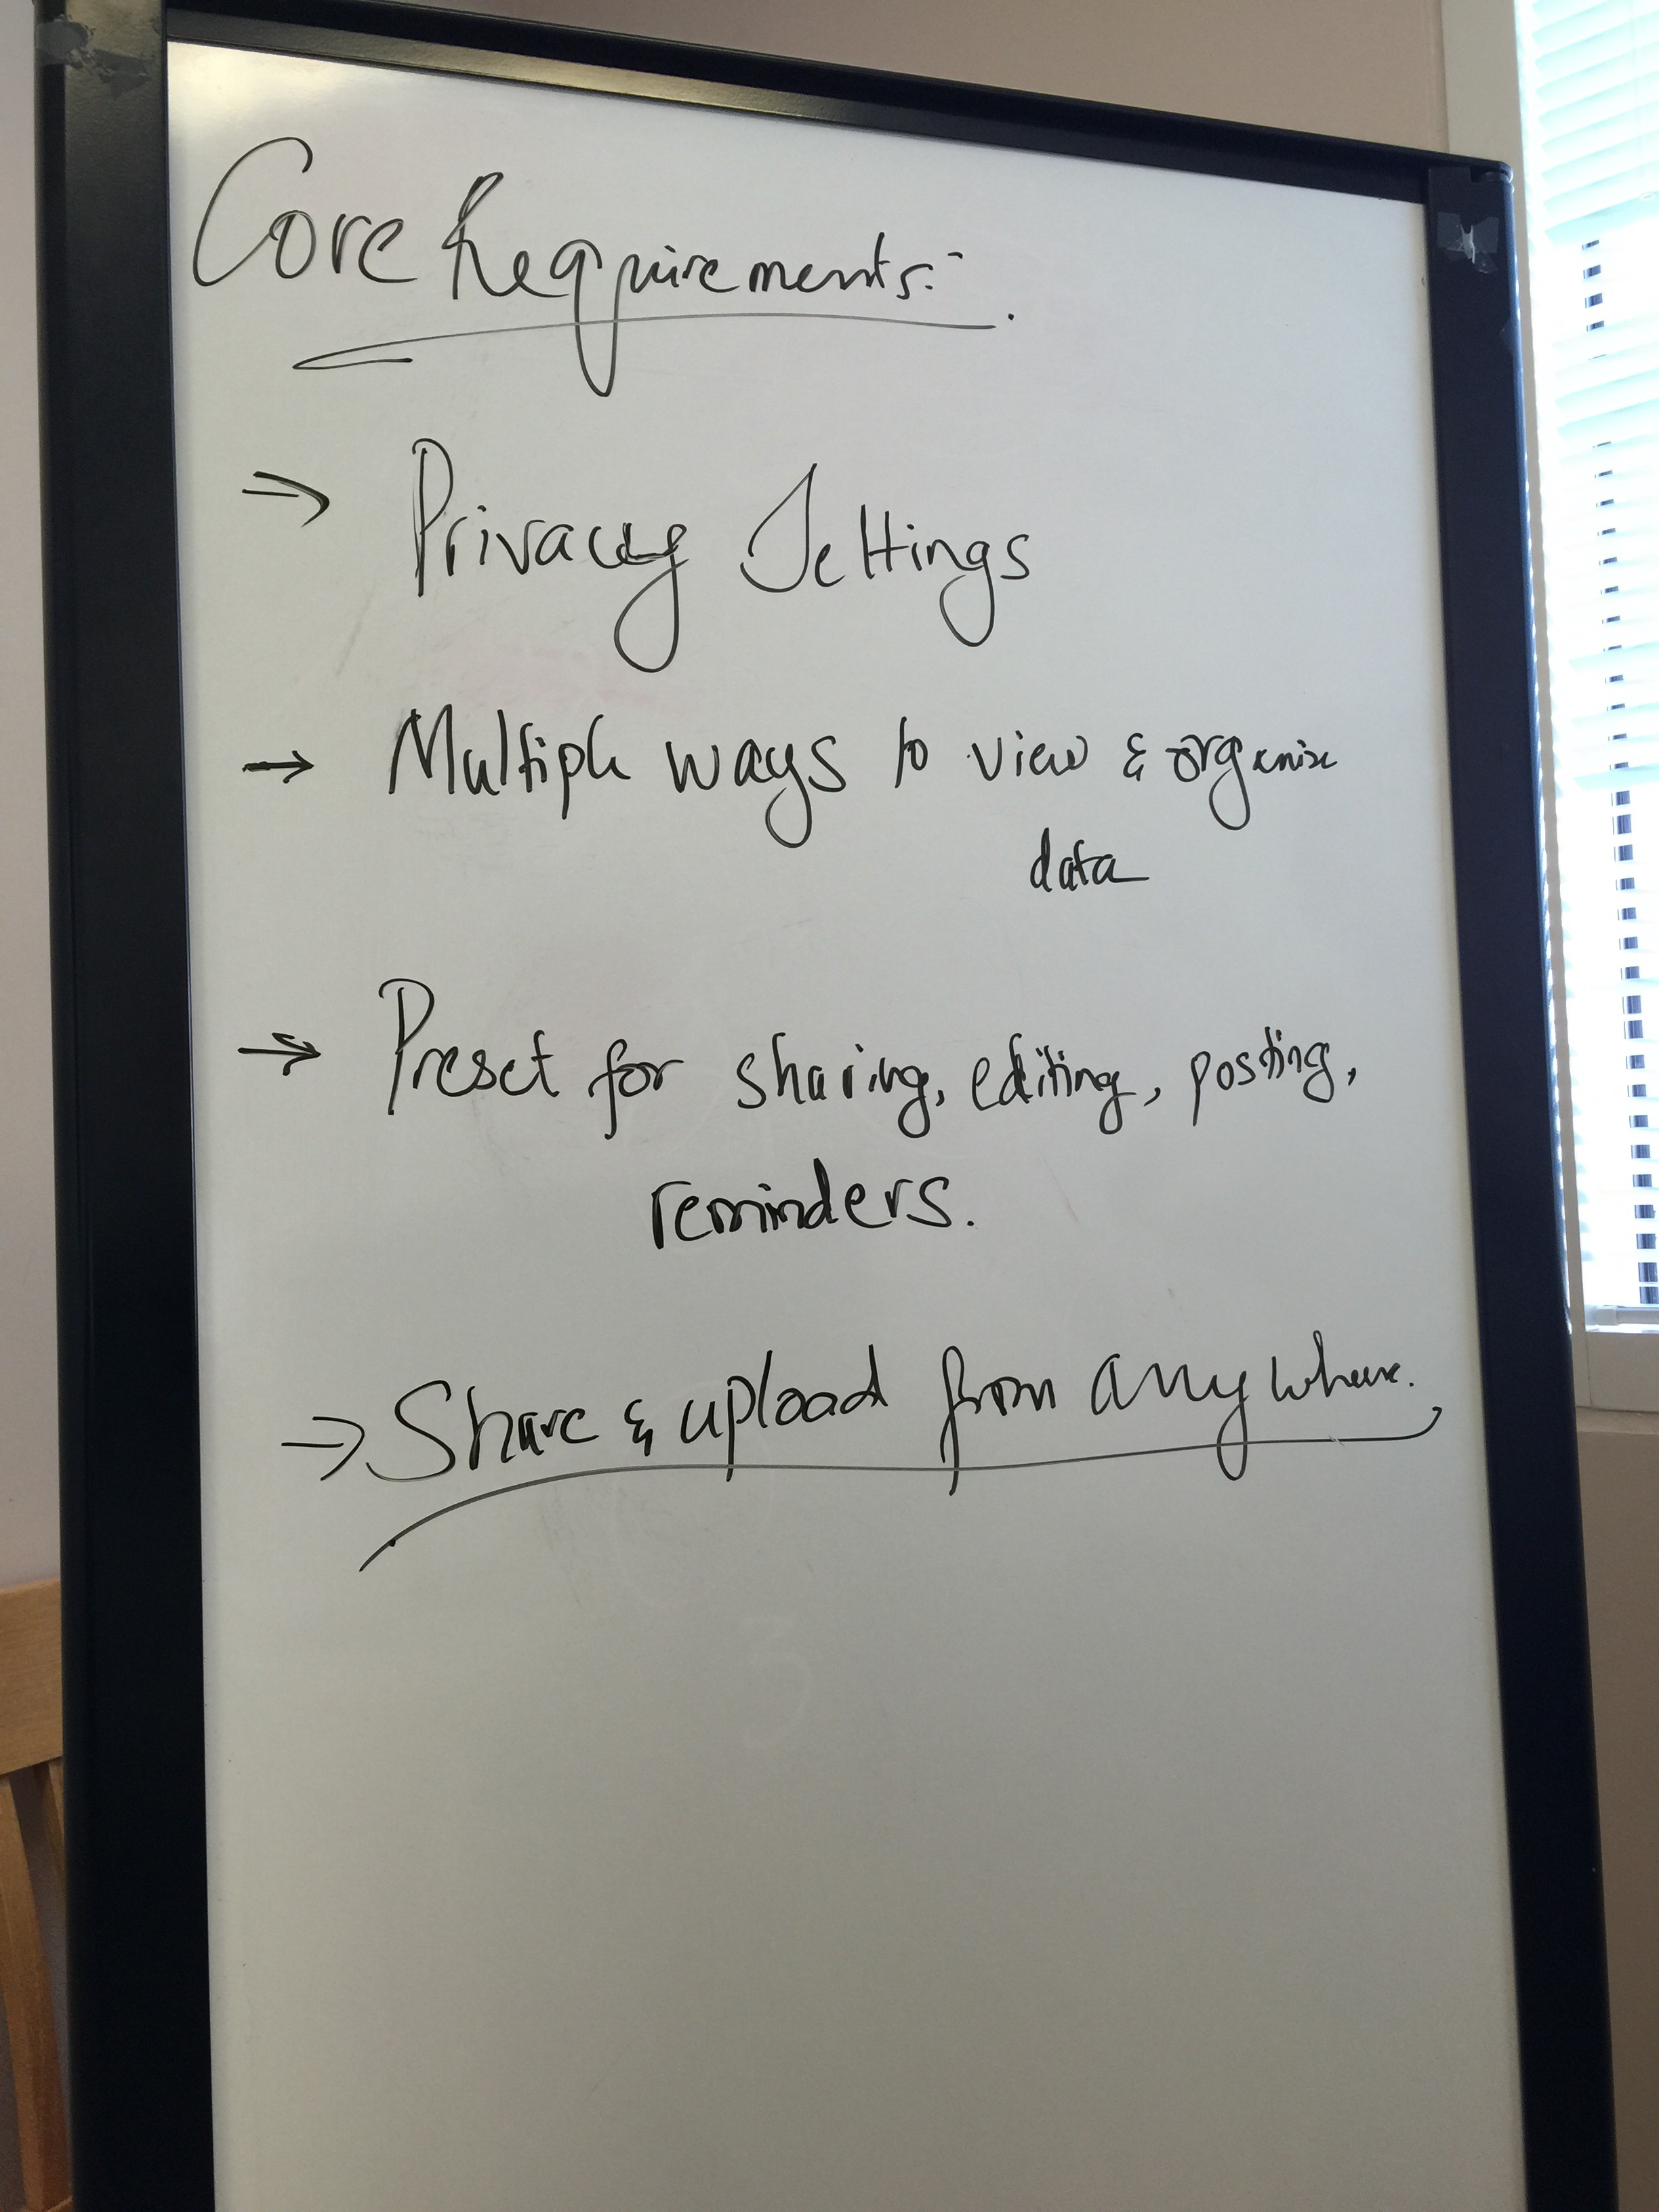 Core Requirements:-
⇒ Privacy Settings
→ Multiple ways to view & organize
data
→ Preset for sharing, editing, posting,
reminders.
⇒ Share & upload from anywhere.